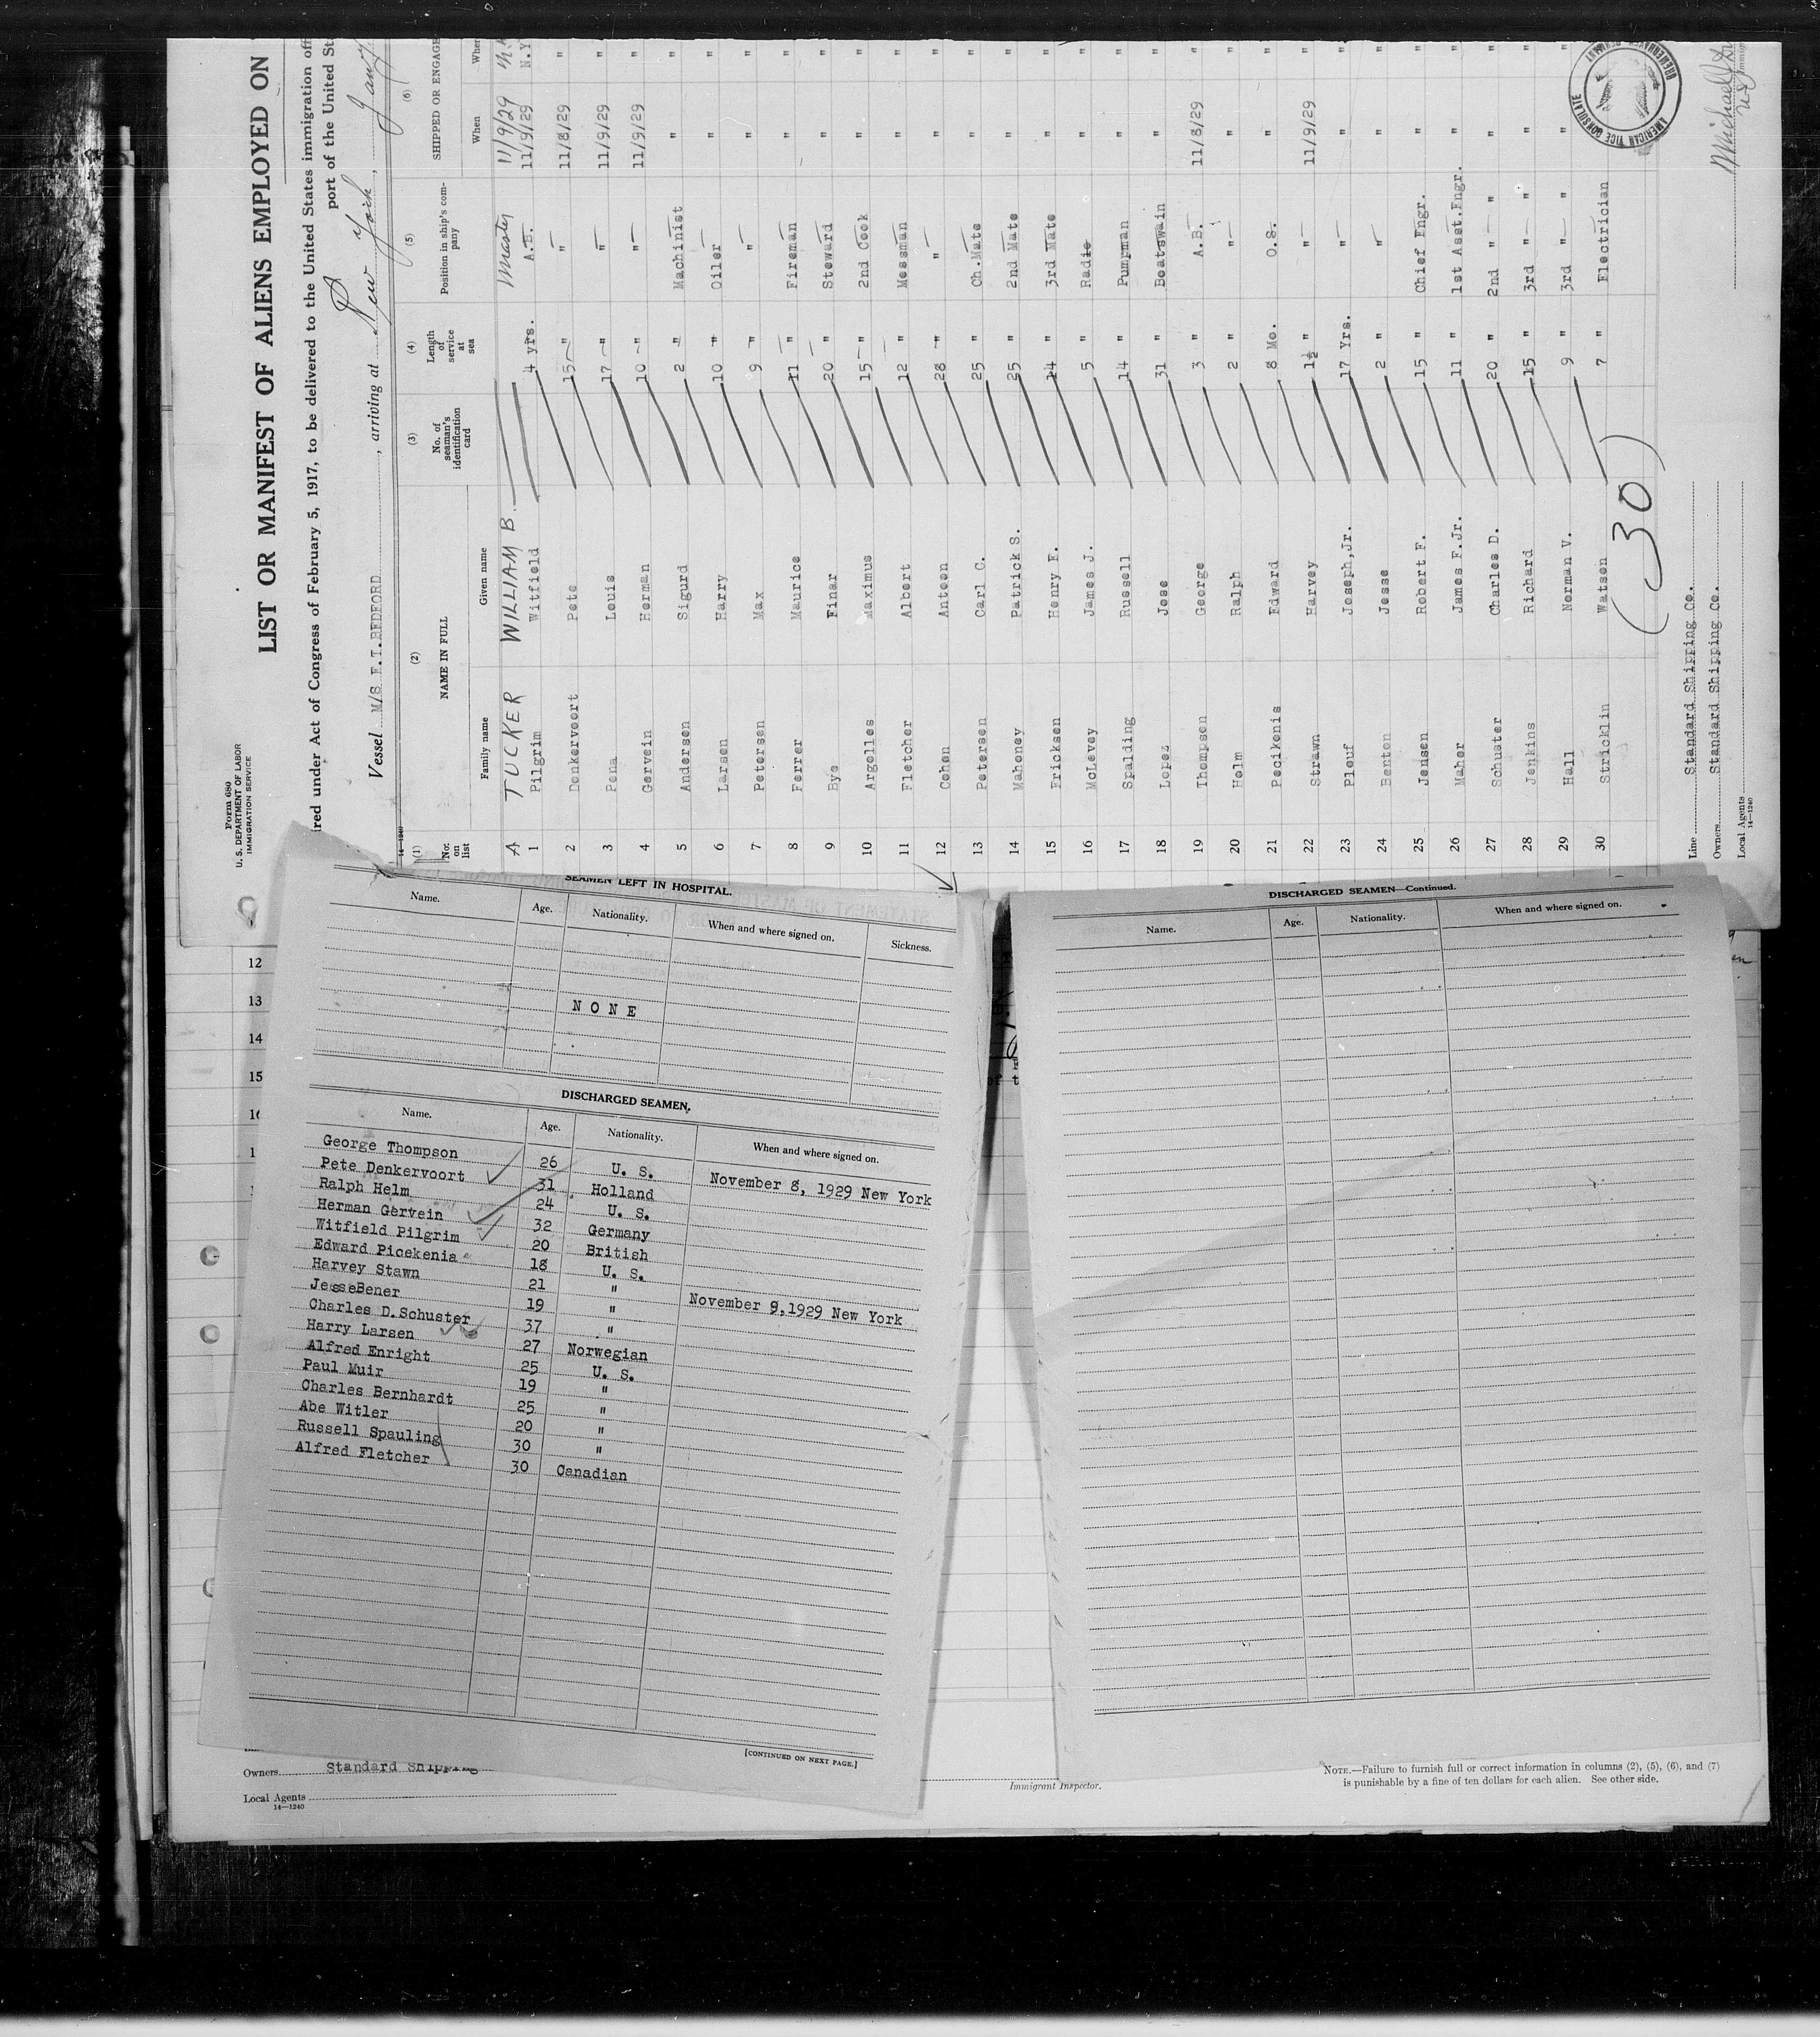 Form 680
U. S. DEPARTMENT OF LABOR
IMMIGRATION SERVICE
LIST OR MANIFEST OF ALIENS EMPLOYED ON
ired under Act of Congress of February 5, 1917, to be delivered to the United States immigration off
port of the United St
Vessel M/S E.T.BEDFORD, arriving at New York,
(1) (2) (3) (4) (5) (6)
No. on list NAME IN FULL No. of seaman's identification card Length of service at sea Position in ship's com-pany SHIPPED OR ENGAG
Family name Given name When Wher
A TUCKER WILLIAM B. Master 11/9/29
1 Pilgrim Witfield 4 yrs. A.B. 11/9/29 N.Y
2 Denkervoort Pete 15 " " 11/8/29 "
3 Pena Louis 17 " " 11/9/29 "
4 Gervein Herman 10 " " 11/9/29 "
5 Andersen Sigurd 2 " Machinist " "
6 Larsen Harry 10 " Oiler " "
7 Petersen Max 9 " " " "
8 Ferrer Maurice 11 " Fireman " "
9 Bye Einar 20 " Steward " "
10 Argelles Maximus 15 " 2nd Cook " "
11 Fletcher Albert 12 " Messman " "
12 Cohen Antoon 28 " " " "
13 Petersen Carl C. 25 " Ch.Mate " "
14 Mahoney Patrick S. 25 " 2nd Mate " "
15 Ericksen Henry E. 14 " 3rd Mate " "
16 McLevey James J. 5 " Radio " "
17 Spalding Russell 14 " Pumpman " "
18 Lopez Jose 31 " Boatswain " "
19 Thompson George 3 " A.B. 11/8/29 "
20 Helm Ralph 2 " " " "
21 Pecikonis Edward 8 Mo. O.S. " "
22 Strawn Harvey 1½ " " 11/9/29 "
23 Plouf Joseph,Jr. 17 Yrs. " " "
24 Benton Jesse 2 " " " "
25 Jensen Robert F. 15 " Chief Engr. " "
26 Maher James F.Jr. 11 " 1st Asst.Engr. " "
27 Schuster Charles D. 20 " 2nd " " " "
28 Jenkins Richard 15 " 3rd " " " "
29 Hall Norman V. 9 " 3rd " " " "
30 Stricklin Watson 7 " Electrician " "
(30)
Line Standard Shipping Co.
Owners Standard Shipping Co.
Local Agents
14—1240
AMERICAN VICE CONSULATE
SEAMEN LEFT IN HOSPITAL.
Name. Age. Nationality. When and where signed on. Sickness.
NONE
DISCHARGED SEAMEN.
Name. Age. Nationality. When and where signed on.
George Thompson 26 U. S. November 8, 1929 New York
Pete Denkervoort 31 Holland
Ralph Helm 24 U. S.
Herman Gervein 32 Germany
Witfield Pilgrim 20 British
Edward Picekenia 18 U. S.
Harvey Stawn 21 " November 9,1929 New York
JesseBener 19 "
Charles D.Schuster 37 "
Harry Larsen 27 Norwegian
Alfred Enright 25 U. S.
Paul Muir 19 "
Charles Bernhardt 25 "
Abe Witler 20 "
Russell Spauling 30 "
Alfred Fletcher 30 Canadian
[CONTINUED ON NEXT PAGE.]
DISCHARGED SEAMEN—Continued.
Name. Age. Nationality. When and where signed on.
12
13
14
15
Owners Standard Shipping
Local Agents
14—1240
Immigrant Inspector.
NOTE.—Failure to furnish full or correct information in columns (2), (5), (6), and (7)
is punishable by a fine of ten dollars for each alien. See other side.